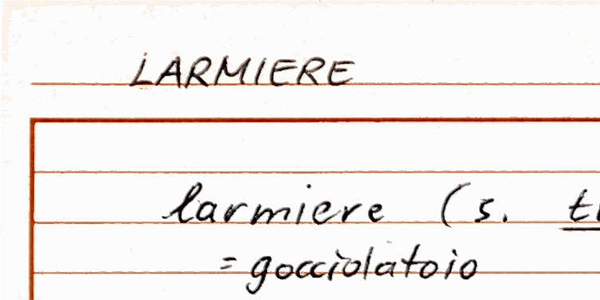 LARMIERE
larmiere (s.
= gocciolatoio